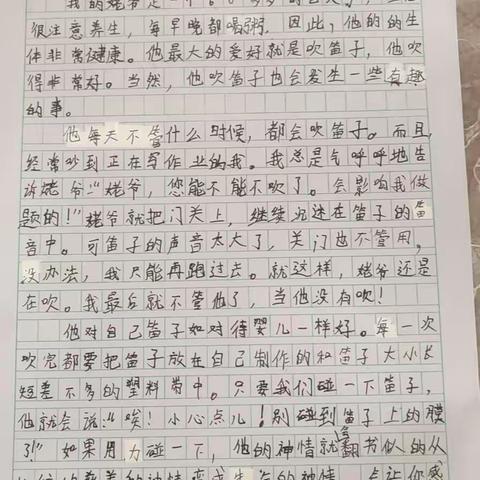 我的姥爷是一个
很注意养生，每早晚都喝粥，因此，他的的生
体非常健康。他最大的爱好就是吹笛子，他吹
得非常好。当然，他吹笛子也会发生一些有趣
的事。
他每天不管什么时候，都会吹笛子。而且，
经常吵到正在写作业的我。我总是气呼呼地告
诉姥爷："姥爷，您能不能不吹了。会影响我做
题的！"姥爷就把门关上，继续沉迷在笛子的笛
音中。可笛子的声音太大了，关门也不管用。
没办法，我只能再跑过去。就这样，姥爷还是
在吹。我最后就不管他了，当他没有吹！
他对自己笛子如对待婴儿一样好。每一次
吹完都要把笛子放在自己制作的和笛子大小长
短差不多的塑料带中。只要我们碰一下笛子，
他就会说："唉！小心点儿！别碰到笛子上的膜
了！"如果用力碰一下，他的神情就会翻书似的从
的神情变成生气的神情，点让你感